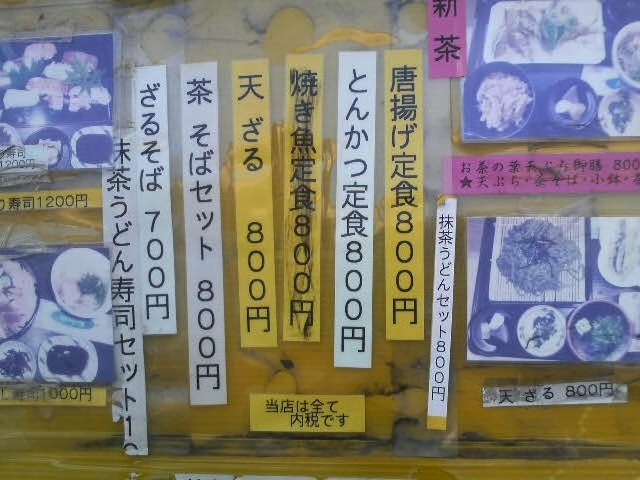 新茶
唐揚げ定食800円
とんかつ定食800円
焼き魚定食800円
天ざる 800円
茶 そばセット 800円
ざるそば 700円
抹茶うどん寿司セット
抹茶うどんセット800円
お茶の葉天ぷら御膳 800
★天ぷら・茶そば・小鉢・
天 ざる 800円
寿司
1200円
寿司1200円
し寿司1000円
当店は全て
内税です